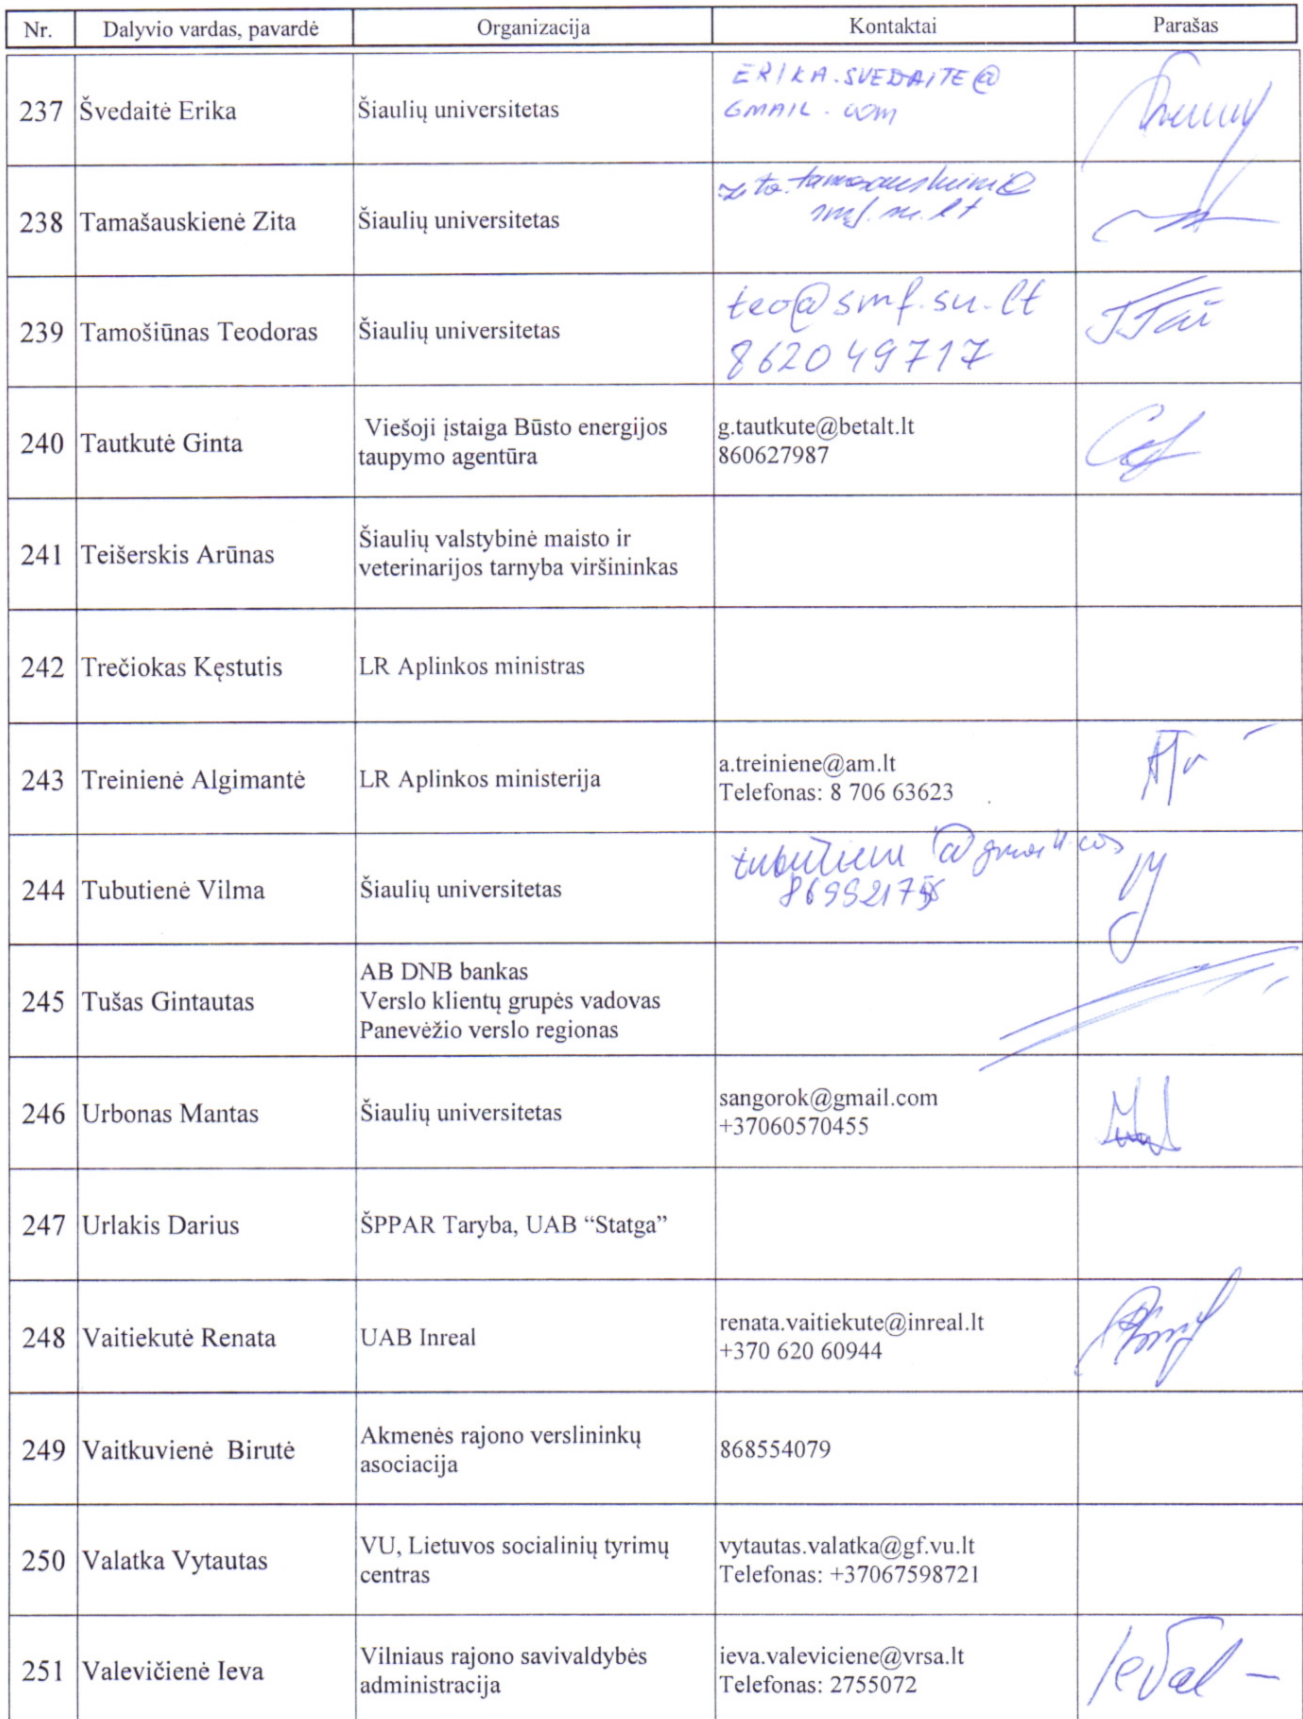 Nr. Dalyvio vardas, pavardė Organizacija Kontaktai Parašas
237 Švedaitė Erika Šiaulių universitetas ERIKA.SVEDAITE@
GMAIL.COM
238 Tamašauskienė Zita Šiaulių universitetas
239 Tamošiūnas Teodoras Šiaulių universitetas teo@smf.su.lt
862049717
240 Tautkutė Ginta Viešoji įstaiga Būsto energijos g.tautkute@betalt.lt
taupymo agentūra 860627987
241 Teišerskis Arūnas Šiaulių valstybinė maisto ir
veterinarijos tarnyba viršininkas
242 Trečiokas Kęstutis LR Aplinkos ministras
243 Treinienė Algimantė LR Aplinkos ministerija a.treiniene@am.lt
Telefonas: 8 706 63623
244 Tubutienė Vilma Šiaulių universitetas
245 Tušas Gintautas AB DNB bankas
Verslo klientų grupės vadovas
Panevėžio verslo regionas
246 Urbonas Mantas Šiaulių universitetas sangorok@gmail.com
+37060570455
247 Urlakis Darius ŠPPAR Taryba, UAB “Statga”
248 Vaitiekutė Renata UAB Inreal renata.vaitiekute@inreal.lt
+370 620 60944
249 Vaitkuvienė Birutė Akmenės rajono verslininkų
asociacija 868554079
250 Valatka Vytautas VU, Lietuvos socialinių tyrimų vytautas.valatka@gf.vu.lt
centras Telefonas: +37067598721
251 Valevičienė Ieva Vilniaus rajono savivaldybės ieva.valeviciene@vrsa.lt
administracija Telefonas: 2755072